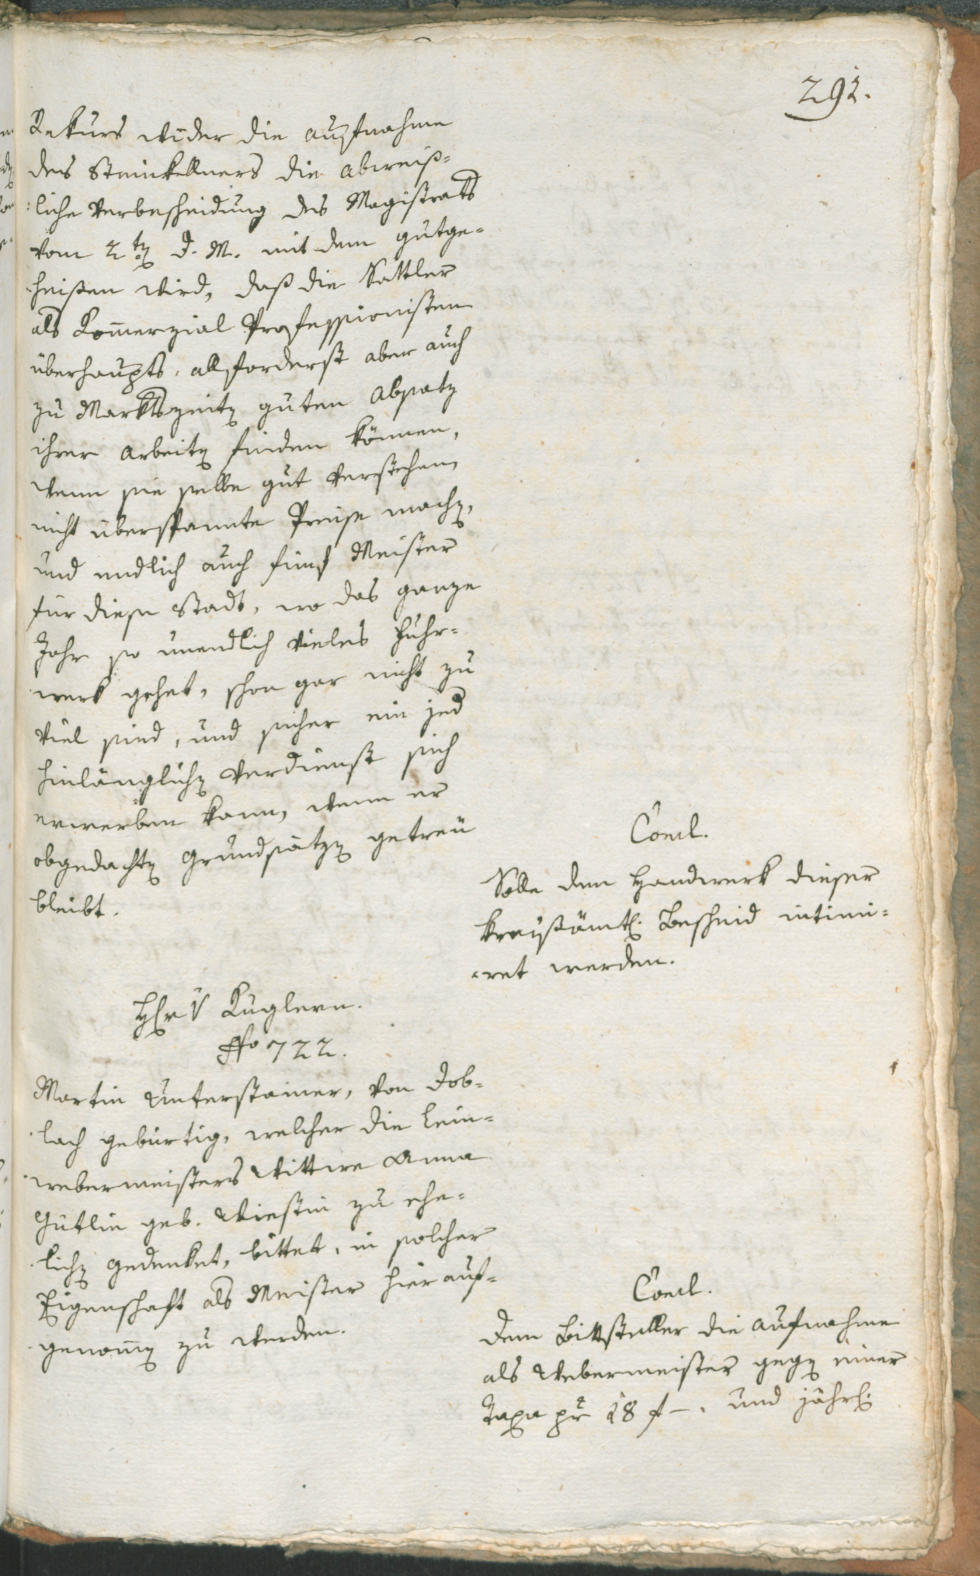 291.
Rekurs wider die Aufnahme
des Steinkellners die abweiß-
liche Verbescheidung des Magistrats
vom 2ten d. M. mit dem gutge-
heissen wird, daß die Sattler
als Komerzial Professionisten
überhaupts, allforderst aber auch
zu Marktszeiten guten Absatz
ihrer Arbeiten finden können,
wenn sie selbe gut verstehen,
nicht überspannte Preise machen,
und endlich auch fünf Meister
für diese Stadt, wo das ganze
Jahr so unendlich vieles Fuhr-
werk gehet, schon gar nicht zu
viel sind, und sicher ein jed
hinlänglichen Verdienst sich
erwerben kann, wenn er
obgedachten Grundsätzen getreu
bleibt.
Concl.
Solle dem Handwerk dieser
kreysämtl. Bescheid intimi-
ret werden.
H Kuglern.
No 722.
Martin Untersteiner, von Dob-
lach gebürtig, welcher die Lein-
webermeisters Wittwe Anna
Hütlin geb. Wiestin zu ehe-
lichen gedenket, bittet, in solcher
Eigenschaft als Meister hier auf-
genomen zu werden.
Concl.
Dem Bittsteller die Aufnahme
als Webermeister gegen einer
Taxa pr 18 f –. und jährl.